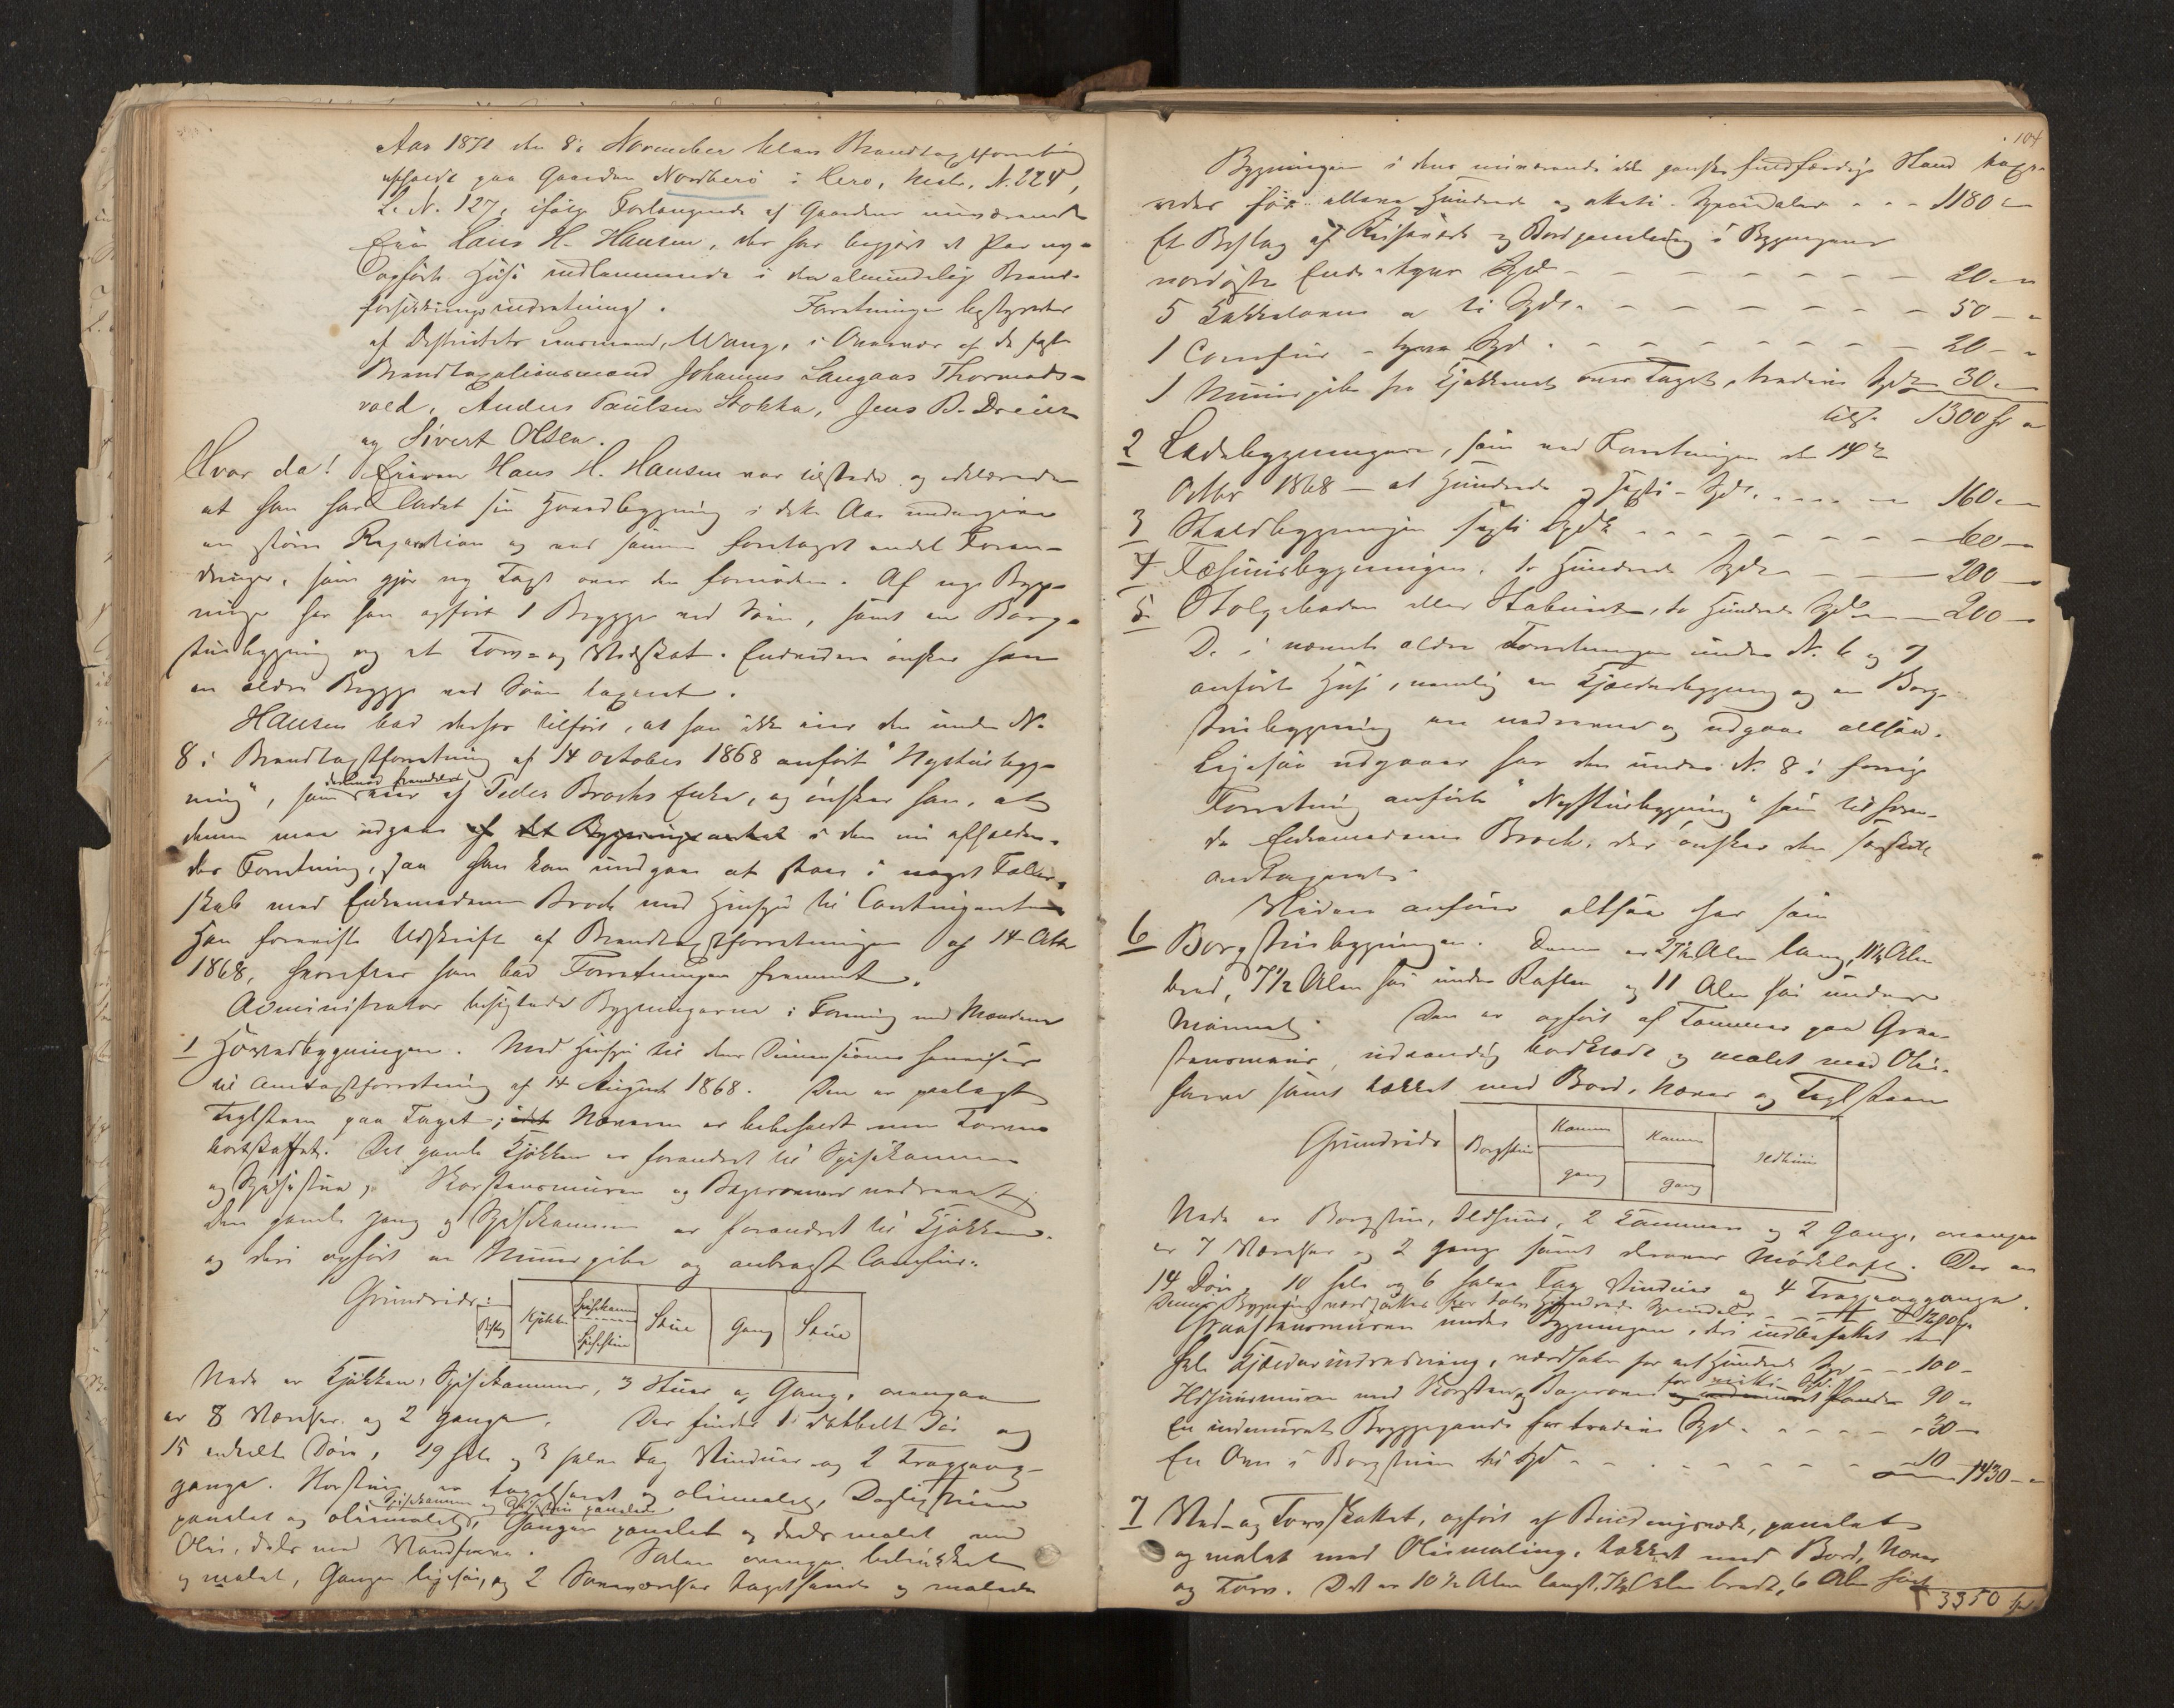 Aar 1871 den 8de November blev Brandtaxtforretning
afholdt paa Gaarden Nordherö i Herö, Matr. N. 224,
L. N. 127, ifølge Forlangende af Gaardens nuværende
Eier Hans H. Hansen, der har begjært et Par ny-
opførte Huse indlemmede i den almindelige Brand-
forsikringsindretning. Forretningen bestyredes
af Distriktets Lensmand, Wang, i Overvær af de faste
Brandtaxationsmænd Johannes Langaas Thormods-
vold, Anders Paulsen Stokka, Jens B. Dreier
og Sivert Olsen.
Hvor da! Eieren Hans H. Hansen var tilstede og erklærede
at han har ladet sin Hovedbygning i dette Aar undergive
en større Reparation og ved samme foretaget endel Foran-
dringer, som gjør ny Taxt over den fornöden. Af nye Byg-
ninger har han opført 1 Brygge ved Söen, samt en Borg-
stuebygning og et Torv- og Vedskot. Endvidere önsker han
en ældre Brygge ved Söen taxeret.
Hansen bad derhos tilført, at han ikke eier den under No
8 i Brandtaxtforretning af 14 October 1868 anførte "Nystuebyg-
ning", som eies af Peder Brochs Enke, og önsker han, at
denne maa udgaa af det Bygningsantal i den nu afholden-
des Forretning, saa han kan undgaa at staa i noget Fælles-
skab med Enkemadame Broch med Hensyn til Contingenten
Han foreviste Udskrift af Brandtaxtforretningen af 14 Octbr
1868, hvorefter han bad Forretningen fremmet.
Administrator besigtede Bygningerne i Forening med Mændene
1 Hovedbygningen. Med Hensyn til dens Dimensioner henvises
til Omtaxtforretning af 14 August 1868. Den er paalagt
Teglsteen paa Taget; Næveren er beholdt men Torven
bortskaffet. Det gamle Kjökken er forandret til Spisekammer
og Spisestue, Skorstensmuren og Bagerovnen nedrevet
den gamle Gang og Spisekammer er forandret til Kjökken
og deri opført en Muurpibe og anbragt Comfur.
Grundrids:
Bislag Kjökken Spisekammer Spisestue Stue Gang Stue
Nede er Kjökken, Spisekammer, 3 Stuer og Gang, ovenpaa
er 8 Værelser og 2 Gange. Der findes 1 dobbelt Dör og
15 enkelte Döre, 29 hele og 3 halve Fag Vinduer og 2 Trapgang-
gange. er tapetseret og oliemalet, Dagligstuen
Spisekammer og Spisestuen panelet
panelet og oliemalet, Gangen panelet og deels malet med
Olie, dels med Vandfarve. Salen ovenpaa betrukket
og malet, Gangen ligesaa, og 2 Soveværelser tapetserede og malede
104
Bygningen i dens nuværende ikke ganske fuldfærdige Stand taxe-
redes for elleve Hundrede og otteti Speciedaler - - - 1180 "
Et Bislag af Reisværk og Bordpaneling i Bygningens
nordøstre Ende - tyve Spd - - - - - - - - 20 "
5 Kakkelovne a ti Spd. - - - - - - - - 50 - "
1 Comfur - tyve Spd. - - - - - - - - 20 - "
1 Muurpibe fra Kjøkkenet over Taget, tredive Spd 30 "
tils. 1300 Spd
2 Ladebygningen, som ved Forretningen den 14de
Octbr 1868 - et Hundrede og sexti - Spd. - - - - 160 "
3 Staldbygningen sexti Spd - - - - - - - - 60 -
4 Fæhuusbygningen, to Hundrede Spd - - - 200 -
5 Stolpeboden eller Staburet, to Hundrede Spd - - 200 -
De i nævnte ældre Forretningen under No 6 og 7
anførte Huse, nemlig en Kjælderbygning og en Borg-
stuebygning ere nedrevne og udgaa altsaa.
Ligesaa udgaaer her den under No 8 i forrige
Forretning anførte "Nystuebygning" som tilhøren-
de Enkemadame Broch, der önsker den særskilt
omtaxeret.
Videre anføres altsaa her som
6 Borgstuebygningen. Denne er 27½ Alen lang, 11½ Alen
bred, 7½ Alen höi under Raften og 11 Alen höi under
Mönnet. Den er opfört af Tømmer paa Graa-
steensmuur, udvendig bordklædt og malet med Olie-
farve samt tækket med Bord, Næver og Teglsteen
Grundrids Borgstue Kammer Gang Kammer Gang Ildhuus
Nede er Borgstue, Ildhuus, 2 Kammere og 2 Gange, ovenpaa
er 7 Værelser og 2 Gange samt derover Mörkloft. Der er
14 Döre 10 hele og 6 halve Fag Vinduer og 4 Trappeopgange.
Denne Bygning værdsættes for tolv Hundrede Speciedaler - - 1200 "
Graasteensmuren under Bygningen, deri indbefattet den
hele Kjælderindretning, værdsattes for eet Hundrede Spd - - 100 -
for nitti Spd.
Ildhuusmuren med Skorsten, Bagerovn og indmuret Pande 90 "
En indmuret Bryggepande for tredive Spd. - - - - - 30 -
En Ovn i Borgstuen ti Spd - - - - - - - - 10 1430 - "
7 Ved- og Torvskottet, opfört af Bindingsværk, panelet
og malet med Oliemaling, tækket med Bord, Næver
og Torv. Det er 10½ Alen langt, 7½ Alen bredt, 6 Alen höit
3350 Spd